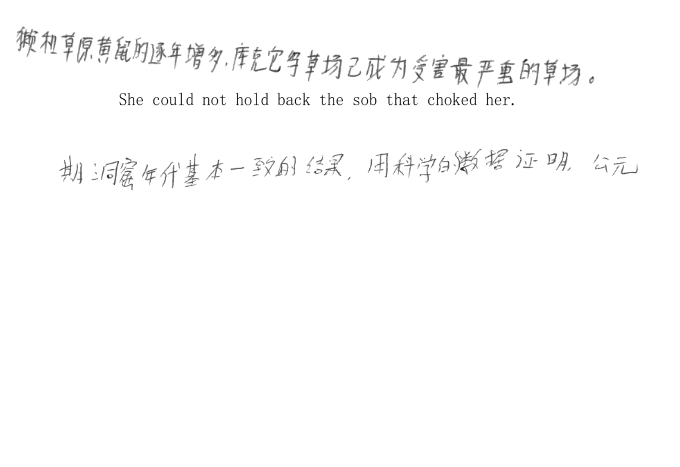 獭和草原黄鼠的逐年增多,库克它等草场已成为受害最严重的草场。
She could not hold back the sob that choked her.
期洞窟年代基本一致的结果,用科学的数据证明,公元